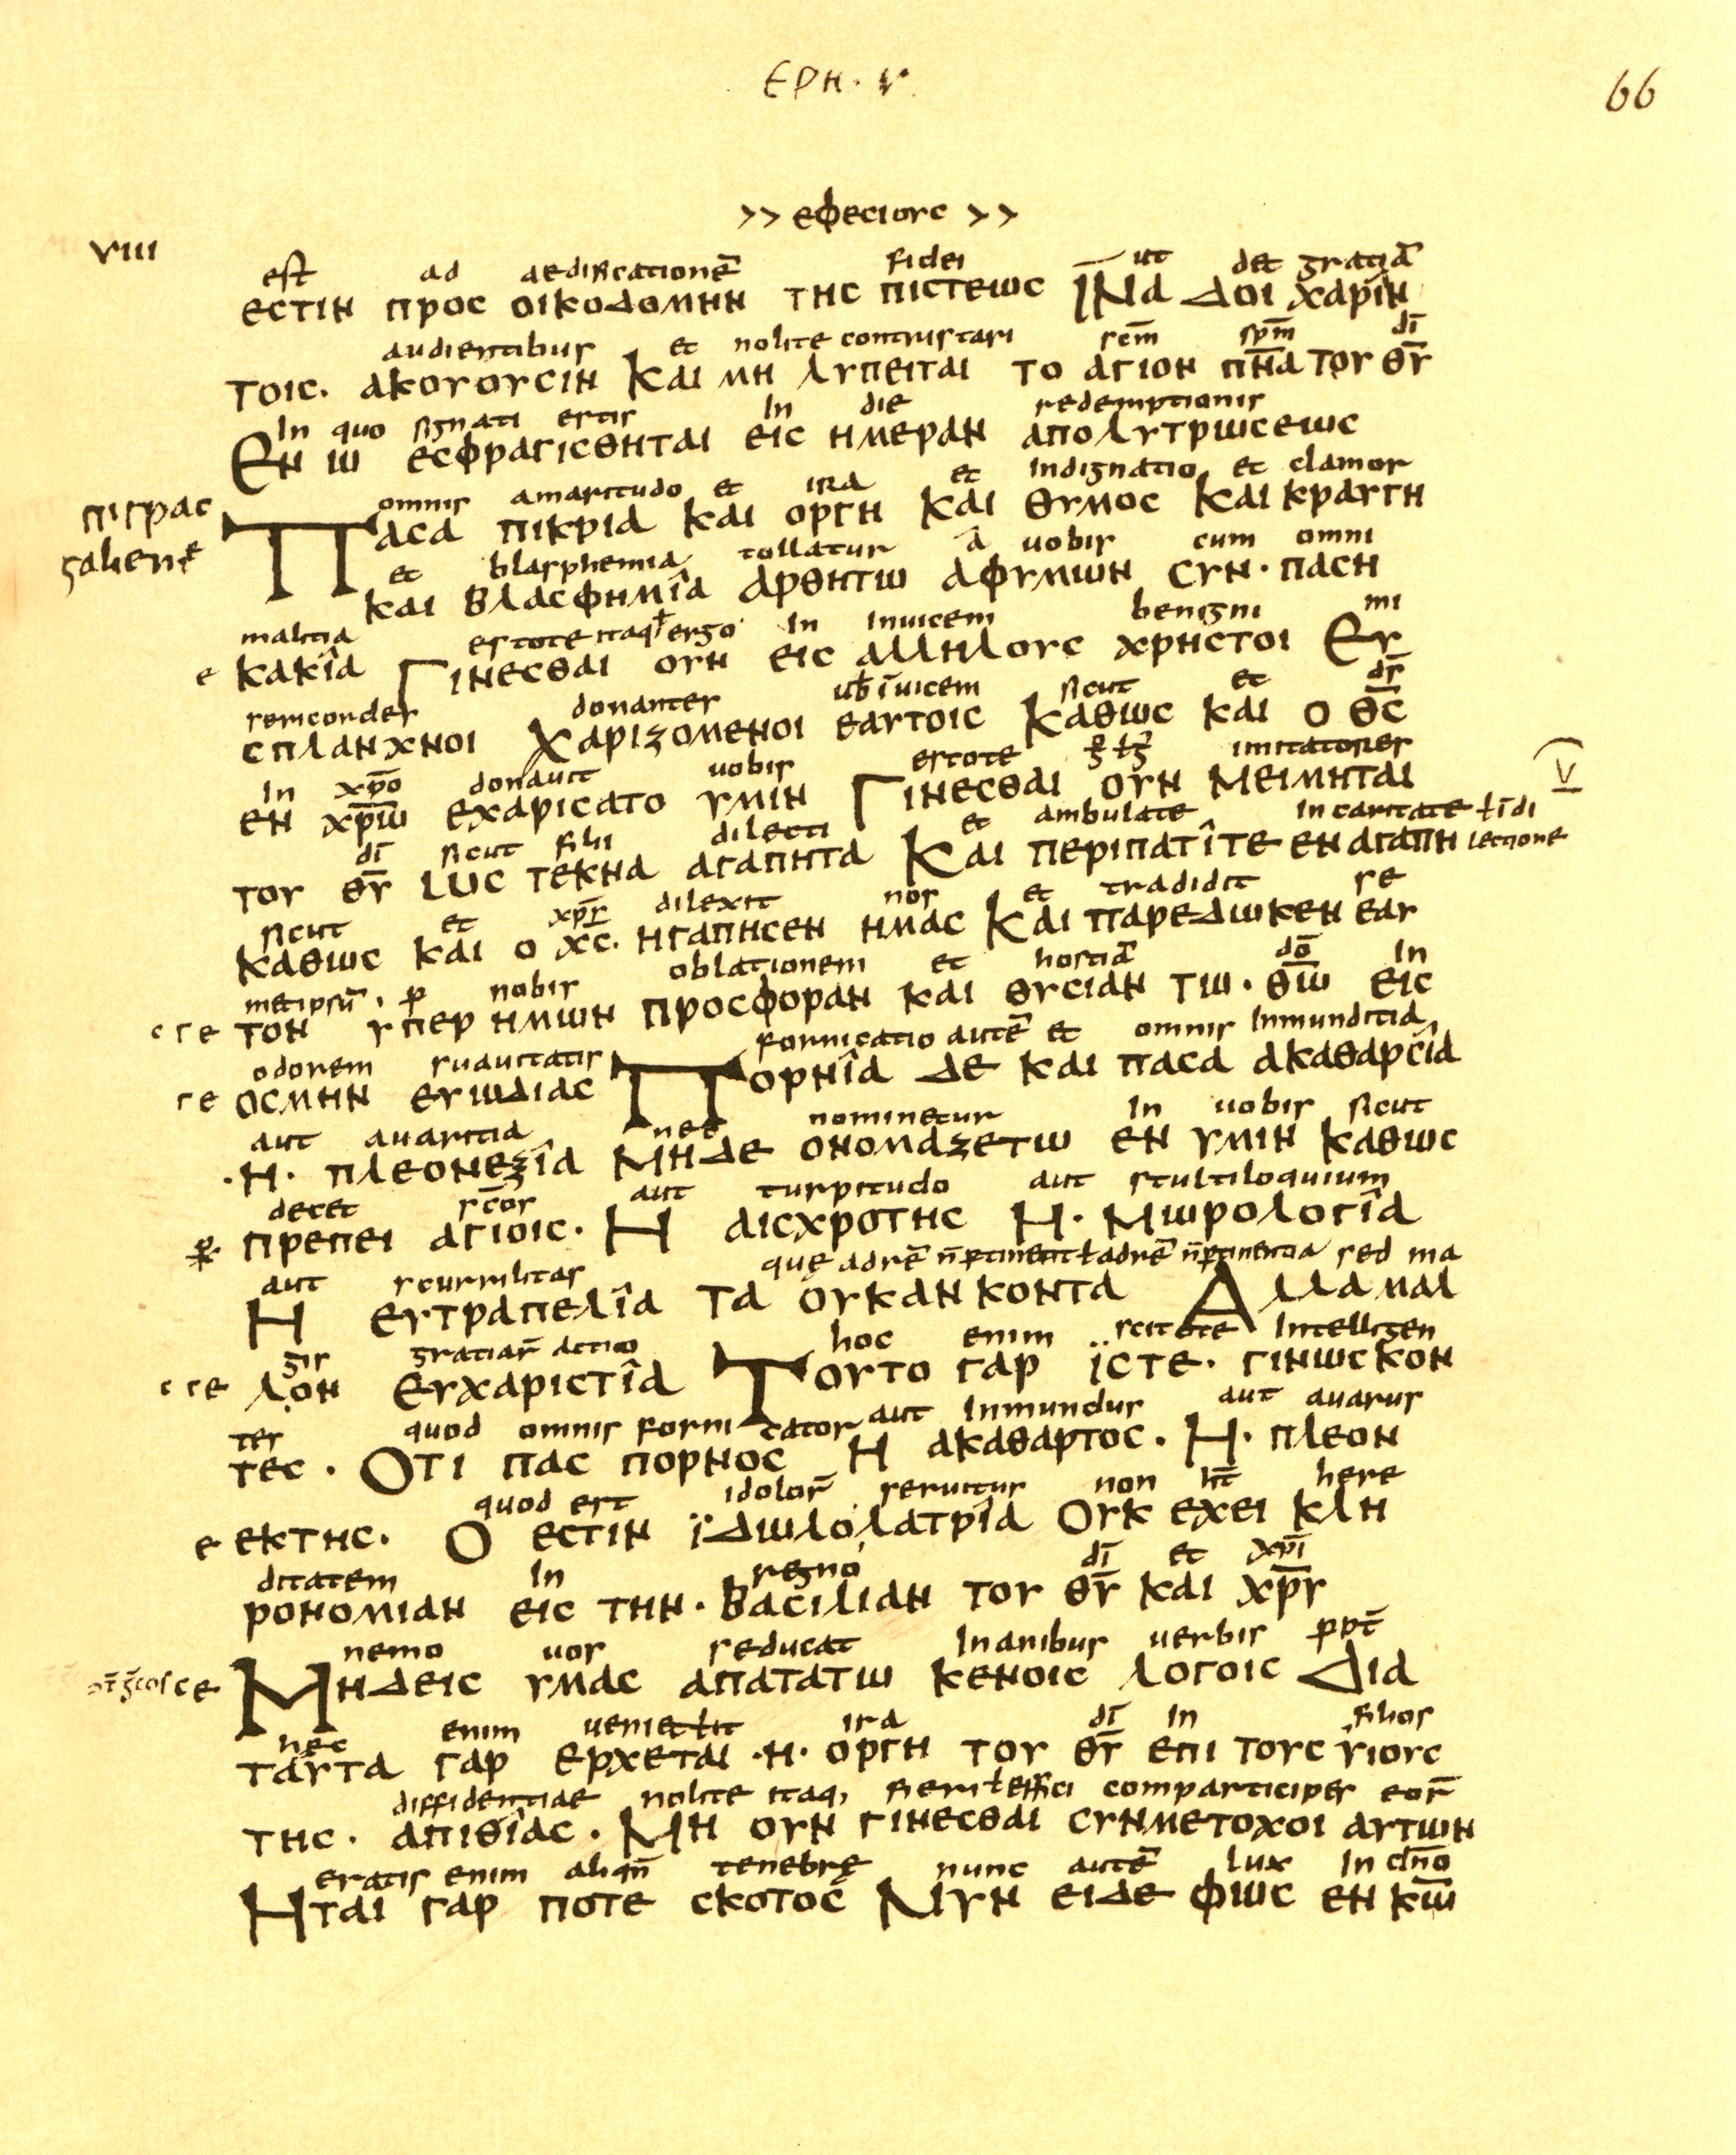 EPH. V.
66
>> εφεσιους >>
VIII
est ad aedificationē fidei ut det gratiā
εστιν προς οικοδομην της πιστεως Ϊ̅Να Δοι χαριν
audientibus et nolite contristari sc̄m sp̄m dī
τοις. ακουουσιν Και μη λυπειται το αγιον π̅ν̅α του θ̅υ̅
In quo signati estis In die redemptionis
Εν ω εσφραγισθηται εις ημεραν απολυτρωσεως
omnis amaritudo et ira et indignatio et clamor
Πασα πικρια Και οργη Και θυμος Και κραυγη
et blasphemia tollatur a uobis cum omni
Και βλασφημῖα αρθητω αφυμων συν. παση
malitia estote itaq; ł ergo In Inuicem benigni mi
e κακῖα Γινεσθαι ουν εις αλληλους χρηστοι Ευ
sericordes donantes uob̄ ł īuicem sicut et d̄s
σπλανχνοι Χαριζομενοι εαυτοις Καθως και ο θ̅σ̅
In xp̄o donauit uobis estote imitatores
εν χ̅ρ̅ω̅ εχαρισατο υμιν Γινεσθαι ουν Μειμηται
V
dī sicut filii dilecti et ambulate In caritate ł īdi
του θ̅υ̅ Ως τεκνα αγαπητα Και περιπατῖτε εν αγαπη lectione
sicut et xp̄s dilexit nos et tradidit se
Καθως και ο χ̅σ̅. ηγαπησεν ημας Και παρεΔωκεν εαυ
metipsū. p nobis oblationem et hostiā dō In
c r e τον υπερ ημων προσφοραν και θυσιαν τω. θ̅ω̅ εις
odorem suauitatis Fornicatio autē et omnis Inmunditia
r e οσμην ευωδιας Πορνῖα Δε και πασα ακαθαρσῖα
aut auaritia nec nominetur In uobis sicut
.η. πλεονεξῖα ΜηΔε ονομαζετω εν υμιν καθως
decet sc̄os aut turpitudo aut stultiloquium
πρεπει αγιοις. Η αισχροτης Η. Μωρολογῖα
aut scurrilitas quę ad rē n̄ pertinent ł ad rē n̄ pertinentia sed ma
Η ευτραπελῖα Τα ουκανκοντα Αλλα μαλ
gis gratiar̄ actio hoc enim scitote Intelligen
c r e λον Ευχαριστῖα Τουτο γαρ ϊστε. γινωσκον
tes quod omnis forni cator aut Inmundus aut auarus
τες. Οτι πας πορνος Η ακαθαρτος. Η. πλεον
quod est idolor̄ seruitus non h̄t here
e εκτης. Ο εστιν ϊΔωλολατρῖα Ουκ εχει κλη
ditatem In regno dī et xp̄i
ρονομιαν εις την. βασιλιαν του θ̅υ̅ και χ̅ρ̅υ̅
nemo uos seducat Inanibus uerbis ppt̄
c e Μηδεις υμας απατατω κενοις λογοις Δια
hęc enim ueniet ł it ira dī In filios
ταυτα γαρ ερχεται .η. οργη του θ̅υ̅ επι τους υιους
diffidentiae nolite itaq; fieri ł effici comparticipes eor̄
της. απιθῖας. Μη ουν γινεσθαι συνμετοχοι αυτων
eratis enim aliqn̄ tenebrę nunc autē lux In dn̄o
Ηται γαρ ποτε σκοτος Νυν ειΔε φως εν κ̅ω̅